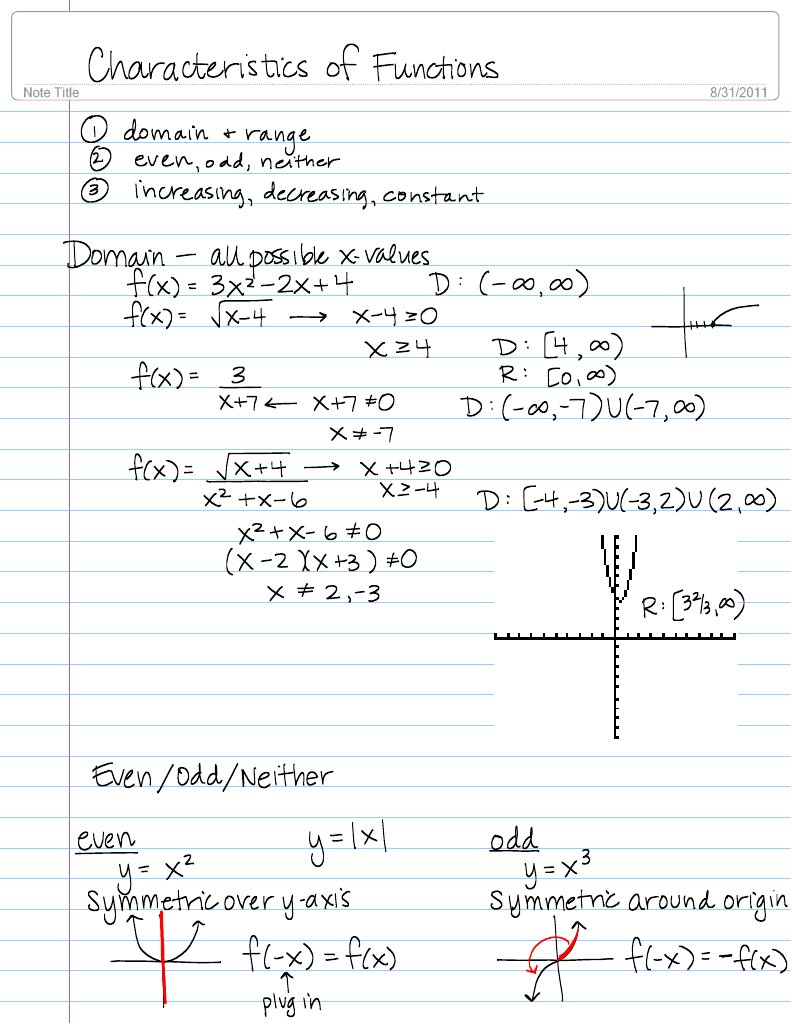 Characteristics of Functions
Note Title 8/31/2011
① domain + range
② even, odd, neither
③ increasing, decreasing, constant
Domain — all possible x-values
f(x) = 3x² - 2x + 4 D: (-∞, ∞)
f(x) = √(x-4) → x-4 ≥ 0
x ≥ 4 D: [4, ∞)
R: [0, ∞)
f(x) = 3/(x+7) ← x+7 ≠ 0 D: (-∞, -7)∪(-7, ∞)
x ≠ -7
f(x) = √(x+4)/(x² + x - 6) → x+4 ≥ 0
x ≥ -4 D: [-4, -3)∪(-3, 2)∪(2, ∞)
x² + x - 6 ≠ 0
(x - 2)(x + 3) ≠ 0
x ≠ 2, -3
R: [3 2/3, ∞)
Even/Odd/Neither
even y = |x| odd
y = x² y = x³
Symmetric over y-axis Symmetric around origin
f(-x) = f(x) f(-x) = -f(x)
↑
plug in